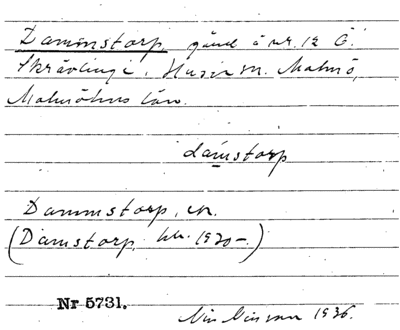 Dammstorp, gård å nr. 12 Ö.
Skrävlinge, Husie sn. Malmö,
Malmöhus län.
damstorp
Dammstorp, n.
(Damstorp, kr. 1920-.)
Nr 5731.
1936.